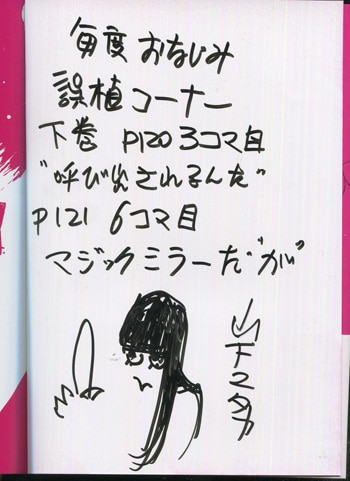 毎度 おなじみ
誤植コーナー
下巻 P120 3コマ目
"呼び出されるんだ"
P121 6コマ目
マジックミラーだ"が"
山下ユタカ